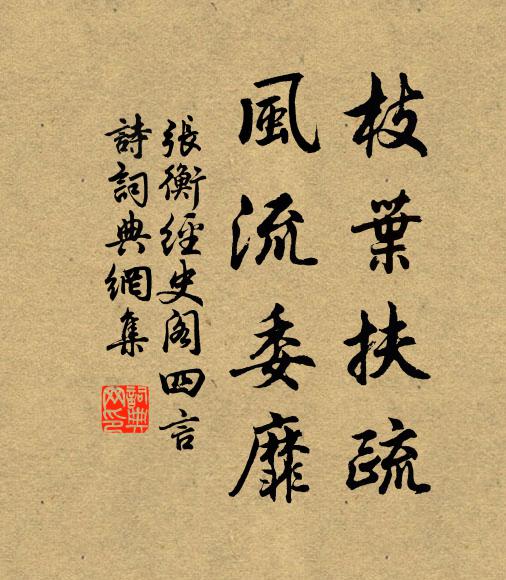 枝葉扶疏
風流委靡
張衡經史閣四言
詩詞典網集
詞典網印